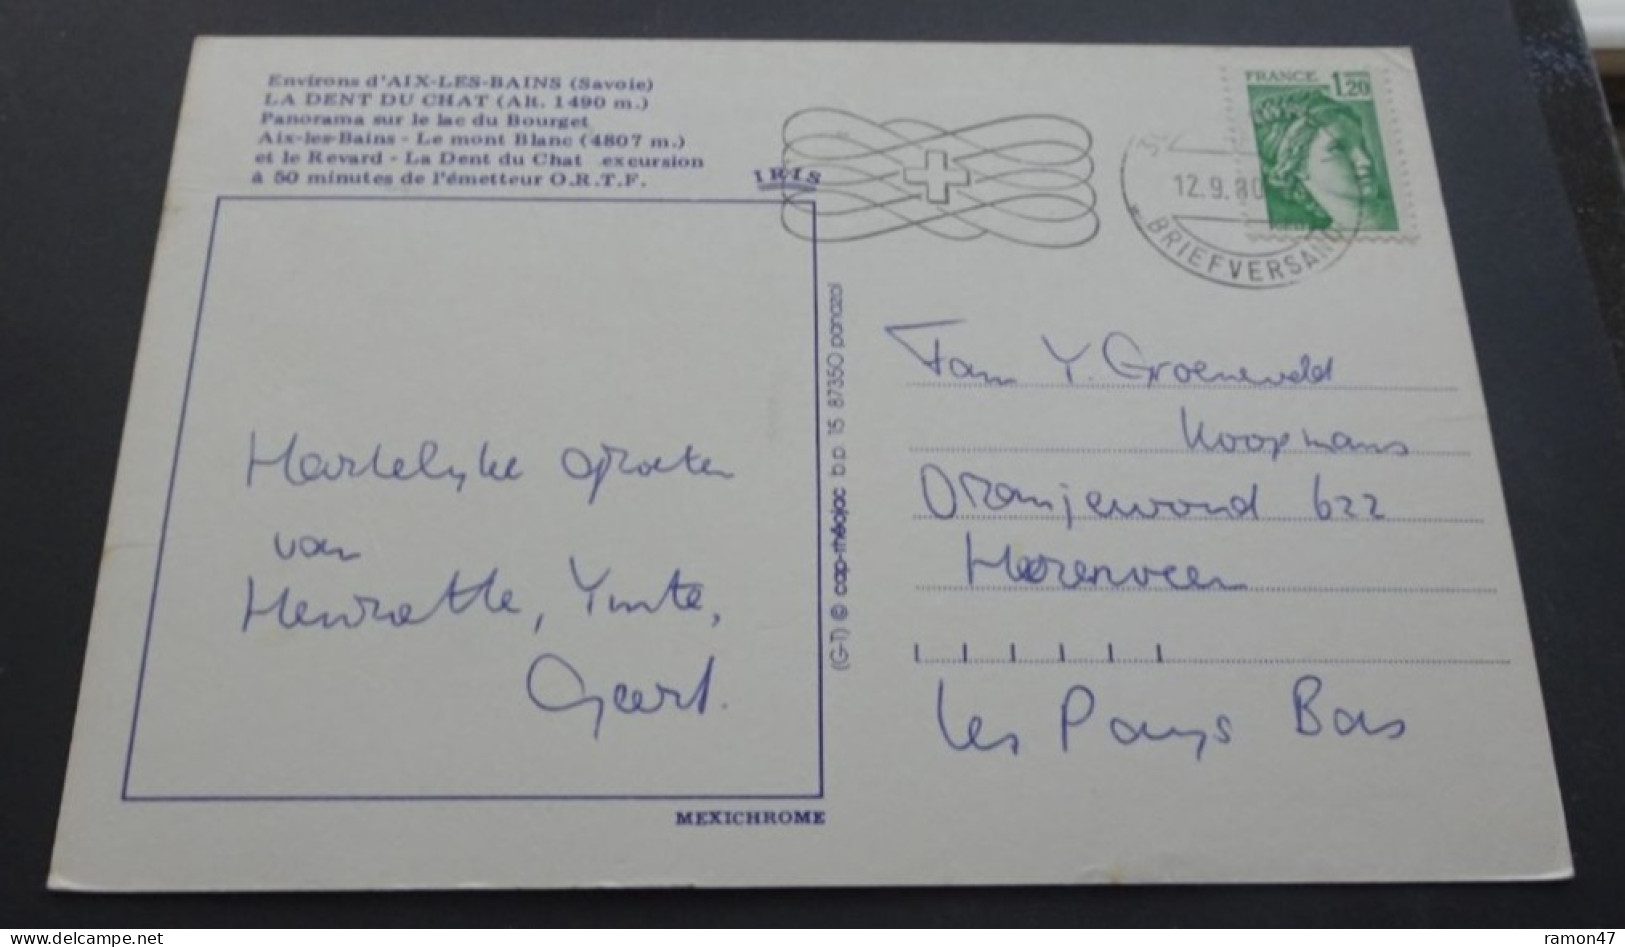 Environs d'AIX-LES-BAINS (Savoie)
LA DENT DU CHAT (Alt. 1490 m.)
Panorama sur le lac du Bourget
Aix-les-Bains - Le mont Blanc (4807 m.)
et le Revard - La Dent du Chat excursion
à 50 minutes de l'émetteur O.R.T.F.
IRIS
FRANCE 1,20
12.9.80
BRIEFVERSAND
Hartelyke groeten
van
Henrette, Ymte,
Geert.
(G-T) © cap-théojac b.p. 15 87350 panazol
Fam Y. Groeneveld
Koopmans
Oranjewoud 622
Heerenveen
Les Pays Bas
MEXICHROME
ramon47